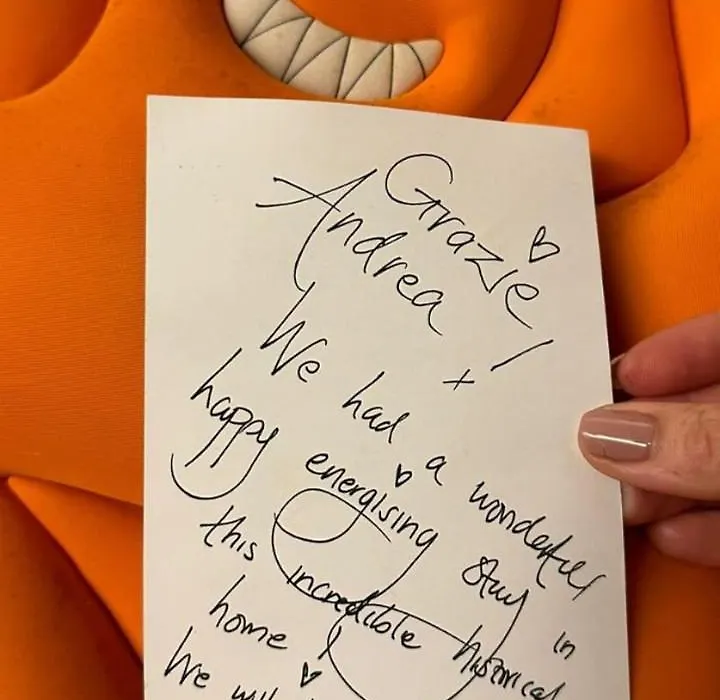 Grazie
Andrea !
We had a wonderful
happy energising stay in
this incredible historical
home !
We will